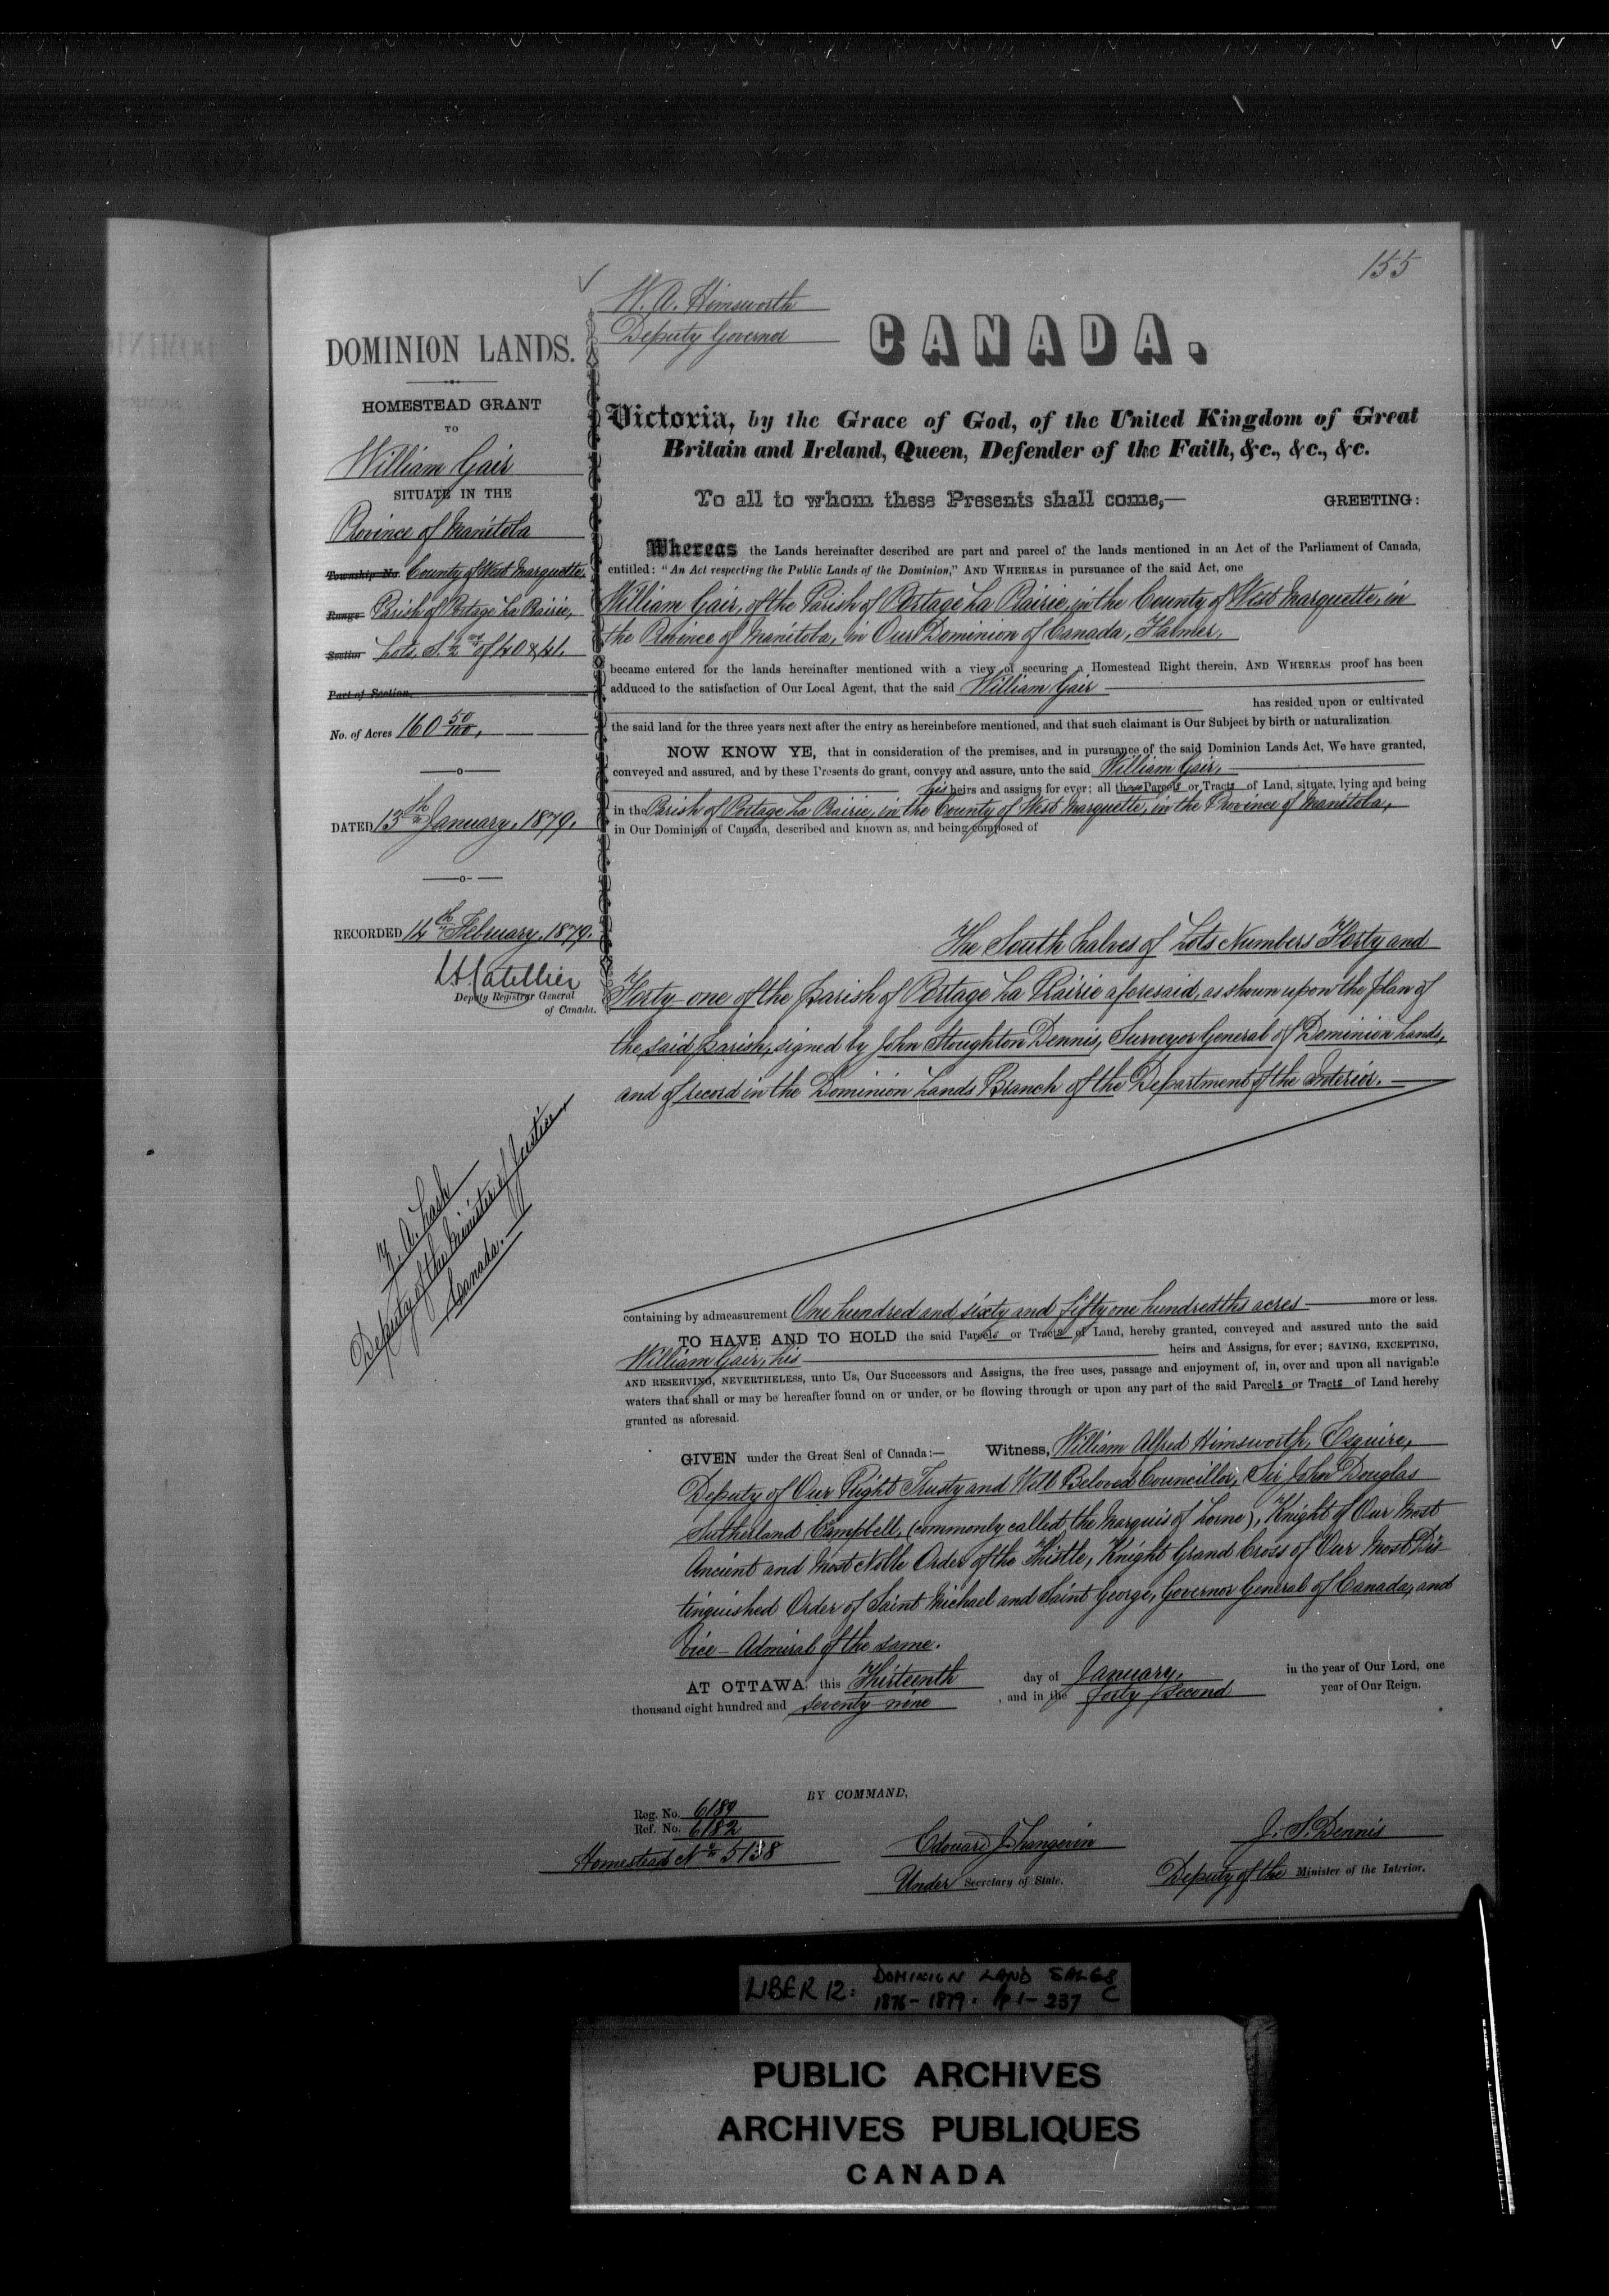 155
W. A. Himsworth
Deputy Governor
CANADA.
DOMINION LANDS.
HOMESTEAD GRANT
TO
William Gair
SITUATE IN THE
Province of Manitoba
Township No County of West Marquette,
Range Parish of Portage La Prairie,
Section Lots, S. ½ of 40 & 41.
Part of Section
No. of Acres 160 50/100,
DATED 13th January, 1879.
RECORDED 14th February, 1879.
Deputy Registrar General
of Canada.
Z. A. Lash
Deputy of the Minister of Justice
Canada.
Victoria, by the Grace of God, of the United Kingdom of Great
Britain and Ireland, Queen, Defender of the Faith, &c., &c., &c.
To all to whom these Presents shall come,— GREETING:
Whereas the Lands hereinafter described are part and parcel of the lands mentioned in an Act of the Parliament of Canada,
entitled: "An Act respecting the Public Lands of the Dominion," AND WHEREAS in pursuance of the said Act, one
William Gair, of the Parish of Portage La Prairie, in the County of West Marquette, in
the Province of Manitoba, in Our Dominion of Canada, Farmer,
became entered for the lands hereinafter mentioned with a view of securing a Homestead Right therein, AND WHEREAS proof has been
adduced to the satisfaction of Our Local Agent, that the said William Gair
has resided upon or cultivated
the said land for the three years next after the entry as hereinbefore mentioned, and that such claimant is Our Subject by birth or naturalization
NOW KNOW YE, that in consideration of the premises, and in pursuance of the said Dominion Lands Act, We have granted,
conveyed and assured, and by these Presents do grant, convey and assure, unto the said William Gair,
his heirs and assigns for ever; all those Parcels or Tracts of Land, situate, lying and being
in the Parish of Portage La Prairie, in the County of West Marquette, in the Province of Manitoba,
in Our Dominion of Canada, described and known as, and being composed of
The South halves of Lots Numbers Forty and
Forty-one of the parish of Portage La Prairie aforesaid, as shown upon the plan of
the said parish, signed by John Stoughton Dennis, Surveyor General of Dominion Lands,
and of record in the Dominion Lands Branch of the Department of the Interior.
containing by admeasurement One hundred and sixty and fifty one hundredths acres more or less.
TO HAVE AND TO HOLD the said Parcels or Tracts of Land, hereby granted, conveyed and assured unto the said
William Gair, his heirs and Assigns, for ever; SAVING, EXCEPTING,
AND RESERVING, NEVERTHELESS, unto Us, Our Successors and Assigns, the free uses, passage and enjoyment of, in, over and upon all navigable
waters that shall or may be hereafter found on or under, or be flowing through or upon any part of the said Parcels or Tracts of Land hereby
granted as aforesaid.
GIVEN under the Great Seal of Canada:— Witness, William Alfred Himsworth, Esquire,
Deputy of Our Right Trusty and Well Beloved Councillor, Sir John Douglas
Sutherland Campbell, (commonly called the Marquis of Lorne), Knight of Our Most
Ancient and Most Noble Order of the Thistle, Knight Grand Cross of Our Most Dis-
tinguished Order of Saint Michael and Saint George, Governor General of Canada, and
Vice-Admiral of the same.
AT OTTAWA, this Thirteenth day of January, in the year of Our Lord, one
thousand eight hundred and seventy nine, and in the forty second year of Our Reign.
BY COMMAND,
Reg. No. 6189
Ref. No. 6182
Homestead No 5138
Edouard J. Langevin
Under Secretary of State.
J. S. Dennis
Deputy of the Minister of the Interior.
LIBER 12: DOMINION LAND SALES
1876-1879. pp 1-237 C
PUBLIC ARCHIVES
ARCHIVES PUBLIQUES
CANADA